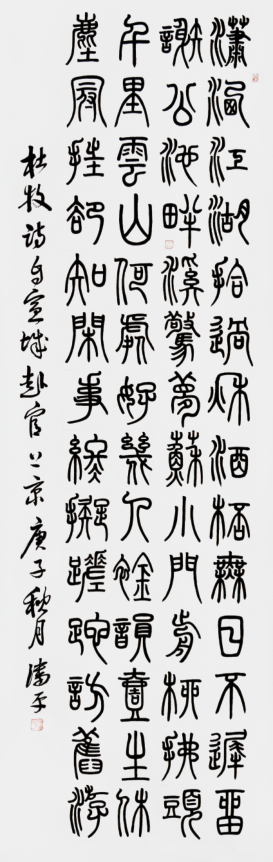 瀟洒江湖拾過秋酒桮無日不遲留
謝公池畔溪驚夢蘇小門前柳拂頭
千里雲山何處好幾人襟韻壹生休
塵冠挂卻知閑事終擬蹉跎訪舊游
杜牧詩自宣城赴官上京庚子秋月